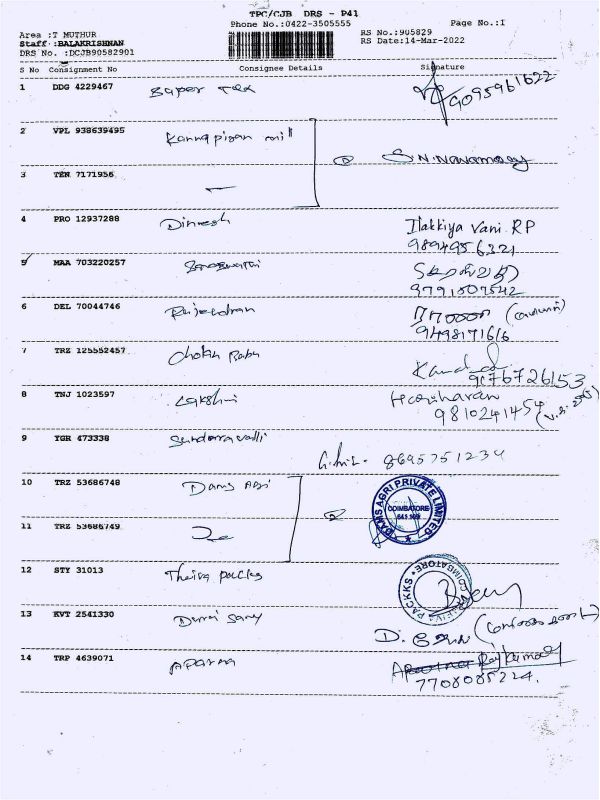 TPC/CJB DRS - P41
Phone No.:0422-3505555
Page No.:1
Area :T MUTHUR
Staff :BALAKRISHNAN
DRS No. :DCJB90582901
RS No.:905829
RS Date:14-Mar-2022
S No Consignment No Consignee Details Signature
1 DDG 4229467 Super Tex 9095961622
2 VPL 938639495 Kannapiran mill
3 TEN 7171956
4 PRO 12937288 Dinesh Ilakkiya Vani. RP
9894956321
5 MAA 703220257 Saraswathi சரஸ்வதி
9791509542
6 DEL 70044746 Rajendran
9498171616
7 TRZ 125552457 Chokku Babu
9076726153
8 TNJ 1023597 Lakshmi Hariharan
9810241454
9 TGR 473338 Sundaravalli
8695751234
10 TRZ 53686748 Dams Agri
DAMS AGRI PRIVATE LIMITED
COIMBATORE
11 TRZ 53686749
12 STY 31013 Theiva packs
THEIVA PACKKS COIMBATORE
13 KVT 2541330 Durai Samy
14 TRP 4639071 Aparna Rajkumar
7708085224.